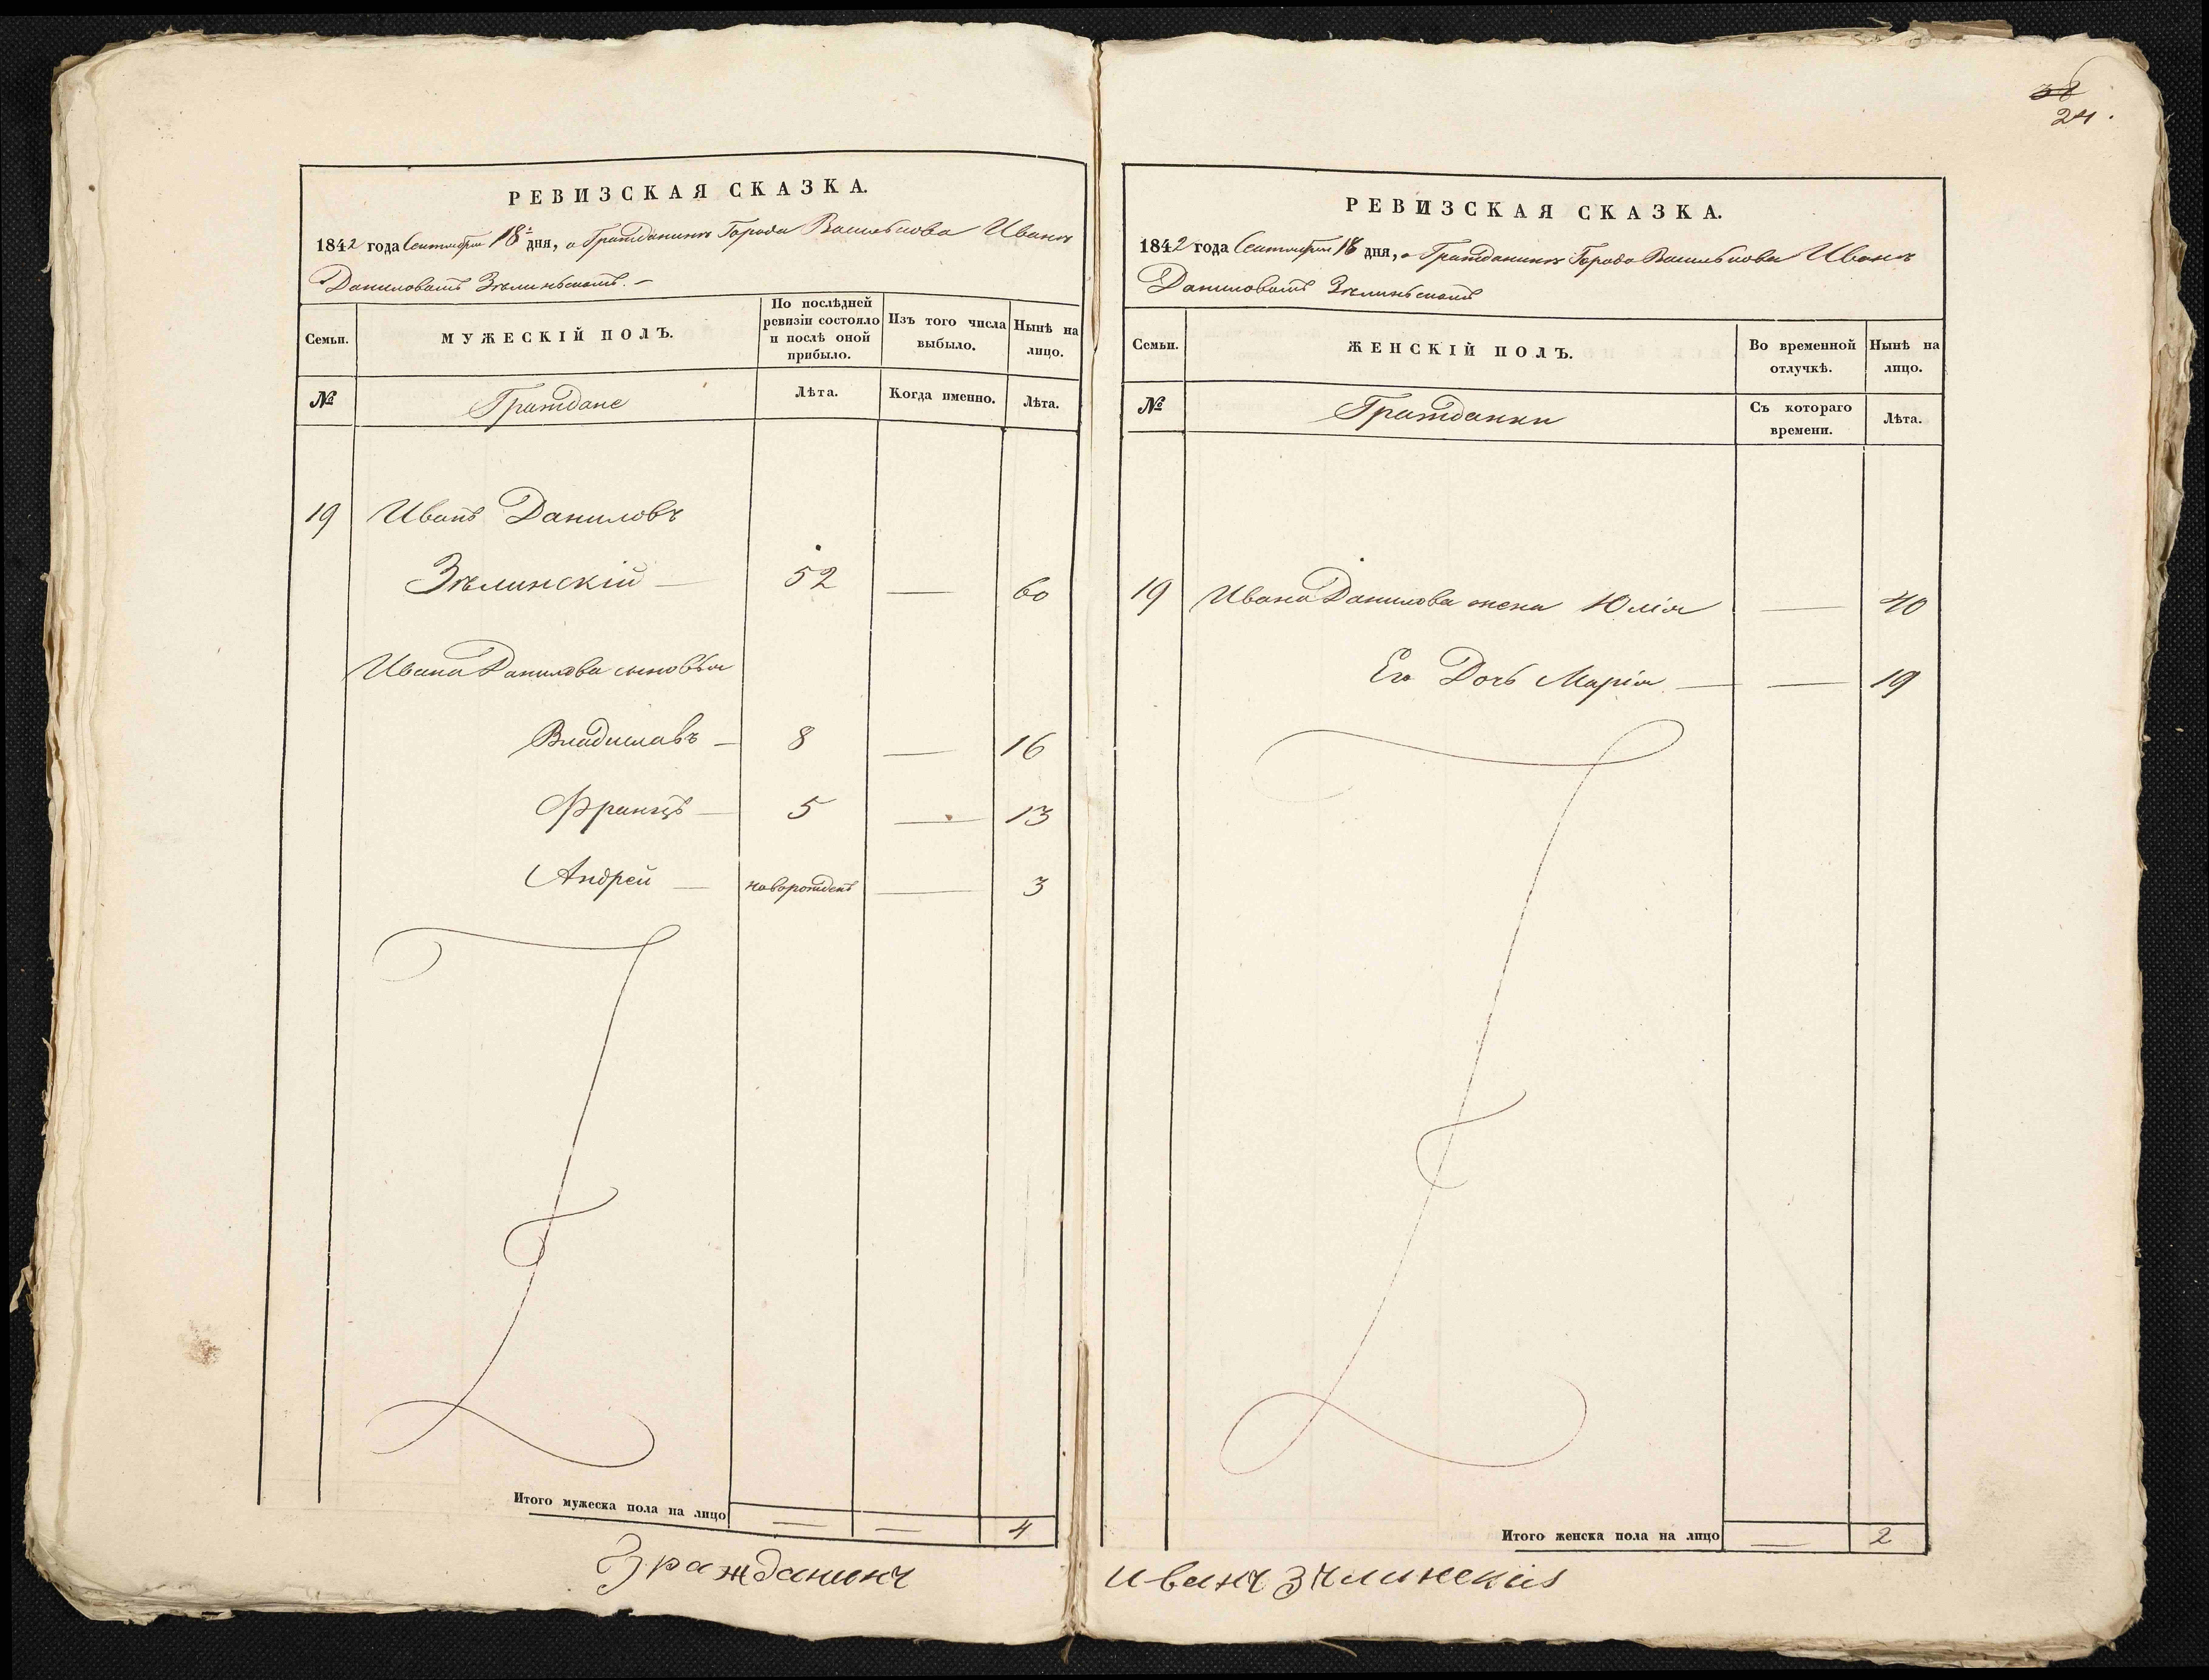 РЕВИЗСКАЯ СКАЗКА.
1842 года Сентября 18 дня, о Гражданинѣ Города Василькова Иванѣ
Даниловомъ Зѣлиньскомъ. –
Семьи.
МУЖЕСКІЙ ПОЛЪ.
По послѣдней ревизіи состояло и послѣ оной прибыло.
Изъ того числа выбыло.
Нынѣ на лицо.
№
Граждане
Лѣта.
Когда именно.
Лѣта.
19 Иванъ Даниловъ
Зѣлинскій — 52 — 60
Ивана Данилова сыновья
Владиславъ — 8 — 16
Францъ — 5 — 13
Андрей — новорожденъ — 3
Итого мужеска пола на лицо — — 4
Гражданинъ
38
24.
РЕВИЗСКАЯ СКАЗКА.
1842 года Сентября 18 дня, о Гражданинѣ Города Василькова Иванѣ
Даниловомъ Зѣлиньскомъ
Семьи.
ЖЕНСКІЙ ПОЛЪ.
Во временной отлучкѣ.
Нынѣ на лицо.
№
Гражданки
Съ котораго времени.
Лѣта.
19 Ивана Данилова жена Юлія — 40
Его Дочь Марія — — 19
Итого женска пола на лицо — 2
иванъ Зѣлинскій